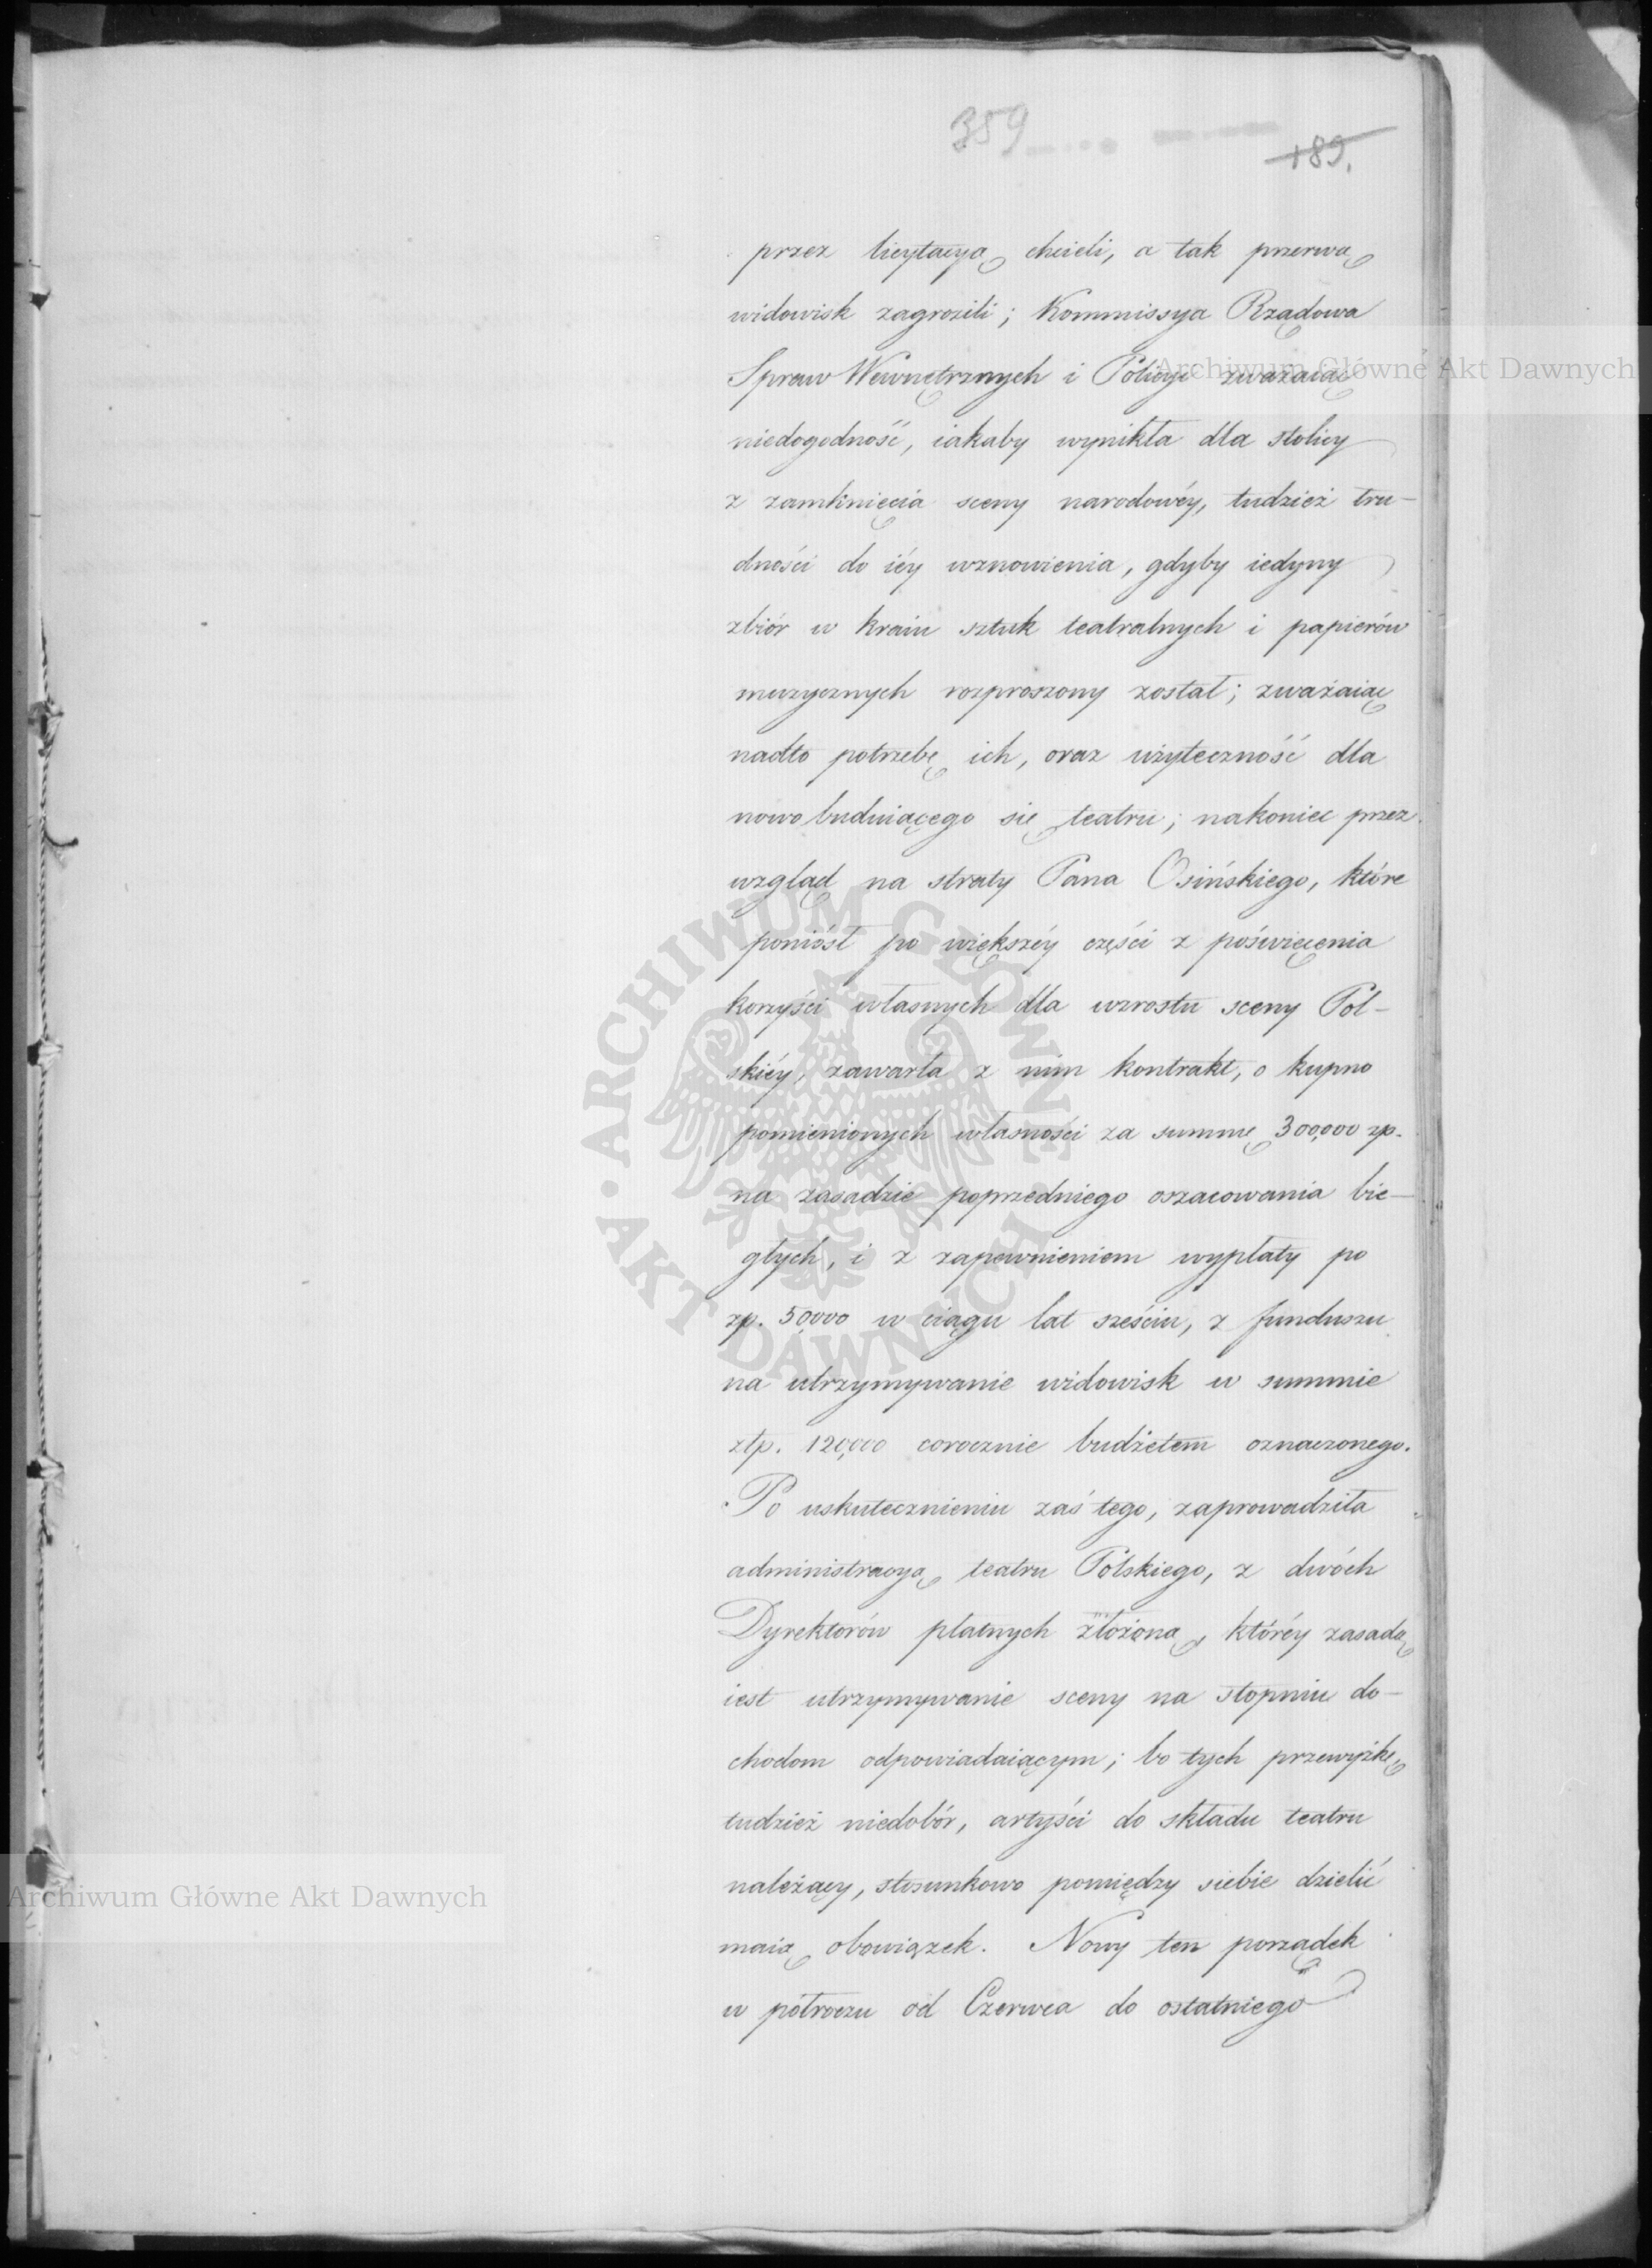 359
189.
przez licytacyą chcieli, a tak przerwą
widowisk zagrozili; Kommissya Rządowa
Spraw Wewnętrznych i Policyi zważaiąc
niedogodność, iakaby wynikła dla stolicy
z zamknięcia sceny narodowéy, tudzież tru-
dności do iéy wznowienia, gdyby iedyny
zbiór w kraiu sztuk teatralnych i papierów
muzycznych rozproszony został; zważaiąc
nadto potrzebę ich, oraz użyteczność dla
nowo buduiącego się teatru; nakoniec przez
wzgląd na straty Pana Osińskiego, które
poniósł po większéy części z poświęcenia
korzyści własnych dla wzrostu sceny Pol-
skiéy, zawarła z nim kontrakt, o kupno
pomienionych własności za summę 300,000 zp.
na zasadzie poprzedniego oszacowania bie-
głych, i z zapewnieniem wypłaty po
zp. 50,000 w ciągu lat sześciu, z funduszu
na utrzymywanie widowisk w summie
złp. 120,000 corocznie budżetem oznaczonego.
Po uskutecznieniu zaś tego, zaprowadziła
administracyą teatru Polskiego, z dwóch
Dyrektorów płatnych złożoną, któréy zasadą
iest utrzymywanie sceny na stopniu do-
chodom odpowiadaiącym; bo tych przewyżkę
tudzież niedobór, artyści do składu teatru
należący, stosunkowo pomiędzy siebie dzielić
maią obowiązek. Nowy ten porządek
w półroczu od Czerwca do ostatniego
Archiwum Główne Akt Dawnych
Archiwum Główne Akt Dawnych
ARCHIWUM GŁÓWNE AKT DAWNYCH